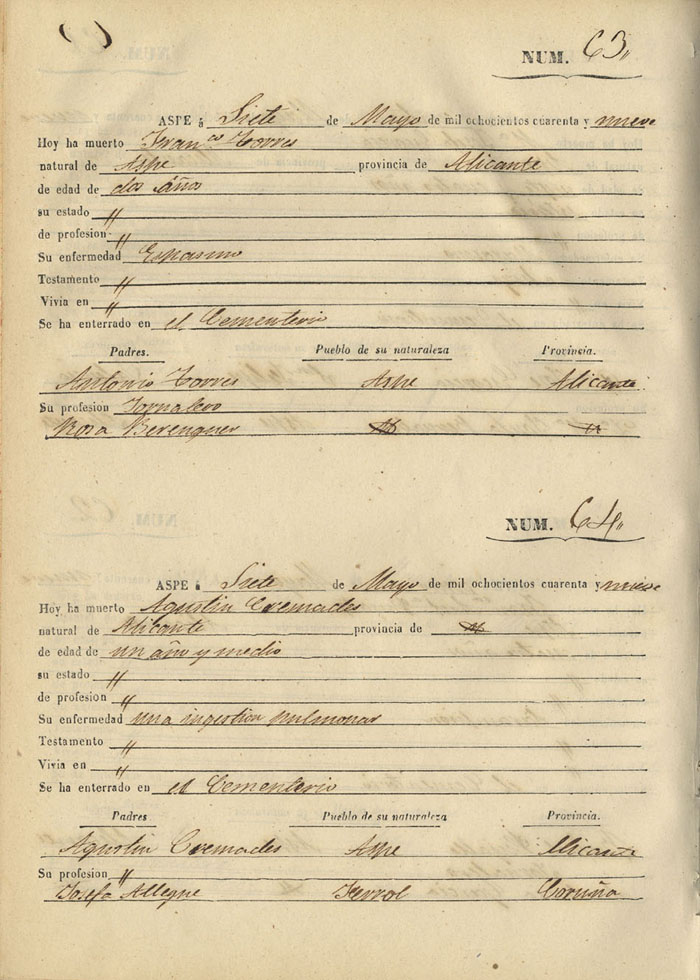 NUM. 63,,
ASPE á Siete de Mayo de mil ochocientos cuarenta y nueve
Hoy ha muerto Fran.co Torres
natural de Aspe provincia de Alicante
de edad de dos años
su estado "
de profesion "
Su enfermedad Espasmo
Testamento "
Vivia en "
Se ha enterrado en el Cementerio
Padres. Pueblo de su naturaleza Provincia.
Antonio Torres Aspe Alicante
Su profesion Jornalero
Rosa Berenguer " "
NUM. 64,,
ASPE á Siete de Mayo de mil ochocientos cuarenta y nueve
Hoy ha muerto Agustin Cremades
natural de Alicante provincia de "
de edad de un año y medio
su estado "
de profesion "
Su enfermedad una ingestion pulmonar
Testamento "
Vivia en "
Se ha enterrado en el Cementerio
Padres Pueblo de su naturaleza Provincia.
Agustin Cremades Aspe Alicante
Su profesion "
Josefa Allegue Ferrol Coruña